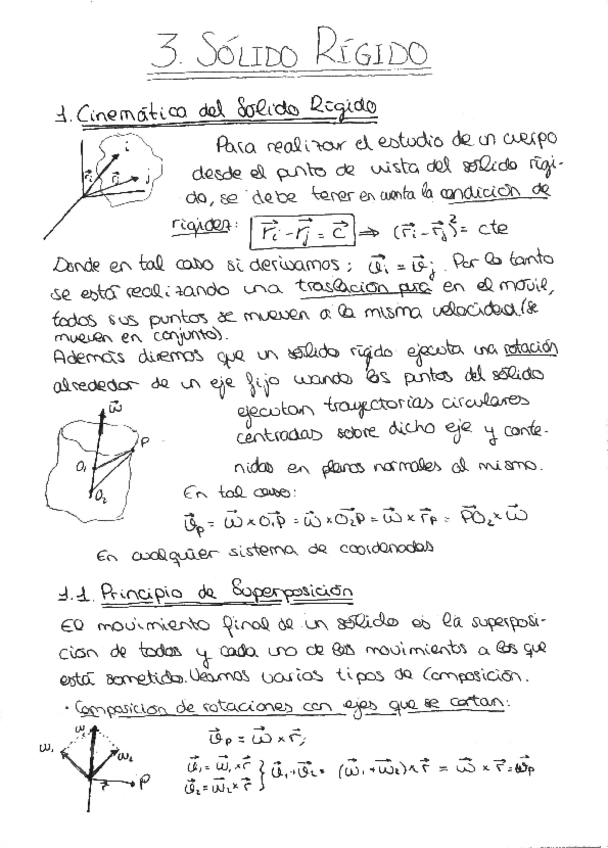 3. SÓLIDO RÍGIDO
1. Cinemática del Sólido Rígido
Para realizar el estudio de un cuerpo
desde el punto de vista del sólido rígi-
do, se debe tener en cuenta la condición de
rigidez: r⃗i - r⃗j = c⃗ ⇒ (r⃗i - r⃗j)² = cte
Donde en tal caso si derivamos: v⃗i = v⃗j. Por lo tanto
se está realizando una traslación pura en el móvil,
todos sus puntos se mueven a la misma velocidad (se
mueven en conjunto).
Además diremos que un sólido rígido ejecuta una rotación
alrededor de un eje fijo cuando los puntos del sólido
ejecutan trayectorias circulares
centradas sobre dicho eje y conte-
nidas en planos normales al mismo.
En tal caso:
v⃗p = ω⃗ × O₁P = ω⃗ × O₂P = ω⃗ × r⃗p = PO₂ × ω⃗
En cualquier sistema de coordenadas
1.1. Principio de Superposición
El movimiento final de un sólido es la superposi-
ción de todos y cada uno de los movimientos a los que
está sometido. Veamos varios tipos de Composición.
· Composición de rotaciones con ejes que se cortan:
v⃗p = ω⃗ × r⃗;
v⃗₁ = ω⃗₁ × r⃗
v⃗₂ = ω⃗₂ × r⃗ } v⃗₁ + v⃗₂ = (ω⃗₁ + ω⃗₂) × r⃗ = ω⃗ × r⃗ = v⃗p
i
r⃗i
r⃗j
j
ω⃗
P
O₁
O₂
ω
ω₁
ω₂
r⃗
P